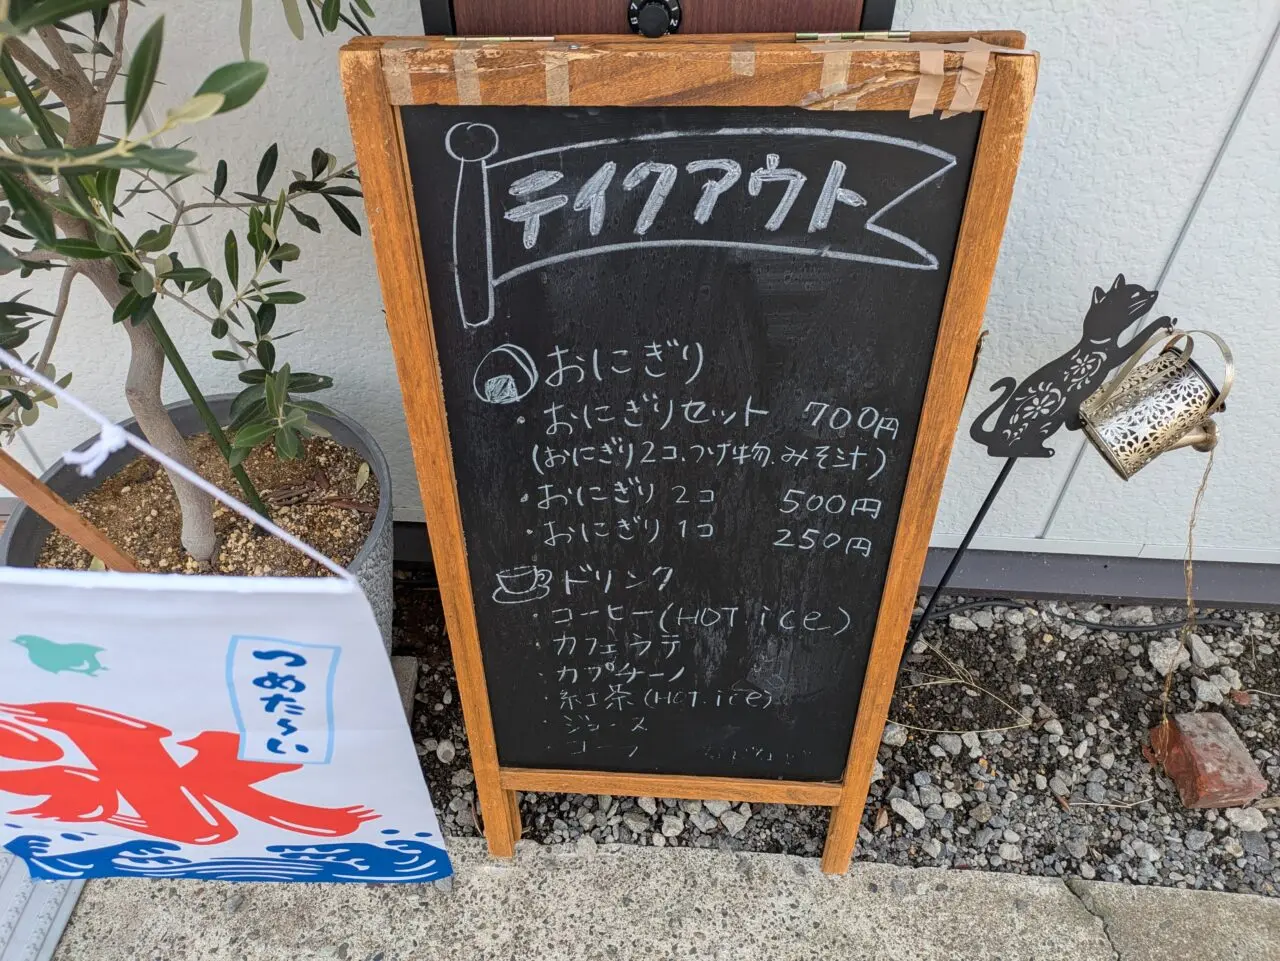 テイクアウト
おにぎり
・おにぎりセット 700円
(おにぎり2コ、つけ物、みそ汁)
・おにぎり 2コ 500円
・おにぎり 1コ 250円
ドリンク
・コーヒー(HOT. ice)
・カフェラテ
・カプチーノ
・紅茶(HOT. ice)
・ジュース
つめた〜い
氷